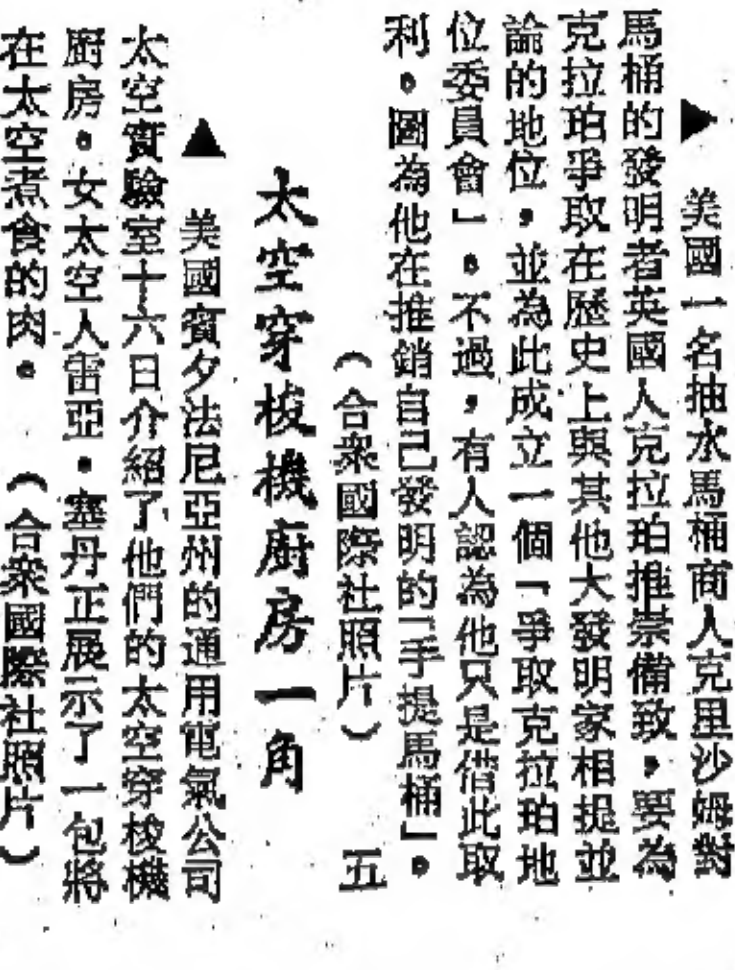 ▶ 美國一名抽水馬桶商人克里沙姆對
馬桶的發明者英國人克拉珀推崇備致，要為
克拉珀爭取在歷史上與其他大發明家相提並
論的地位，並為此成立一個「爭取克拉珀地
位委員會」。不過，有人認為他只是借此取
利。圖為他在推銷自己發明的「手提馬桶」。
（合衆國際社照片） 五
太空穿梭機廚房一角
▲ 美國賓夕法尼亞州的通用電氣公司
太空實驗室十六日介紹了他們的太空穿梭機
廚房。女太空人雷亞·塞丹正展示了一包將
在太空煮食的肉。 （合衆國際社照片）